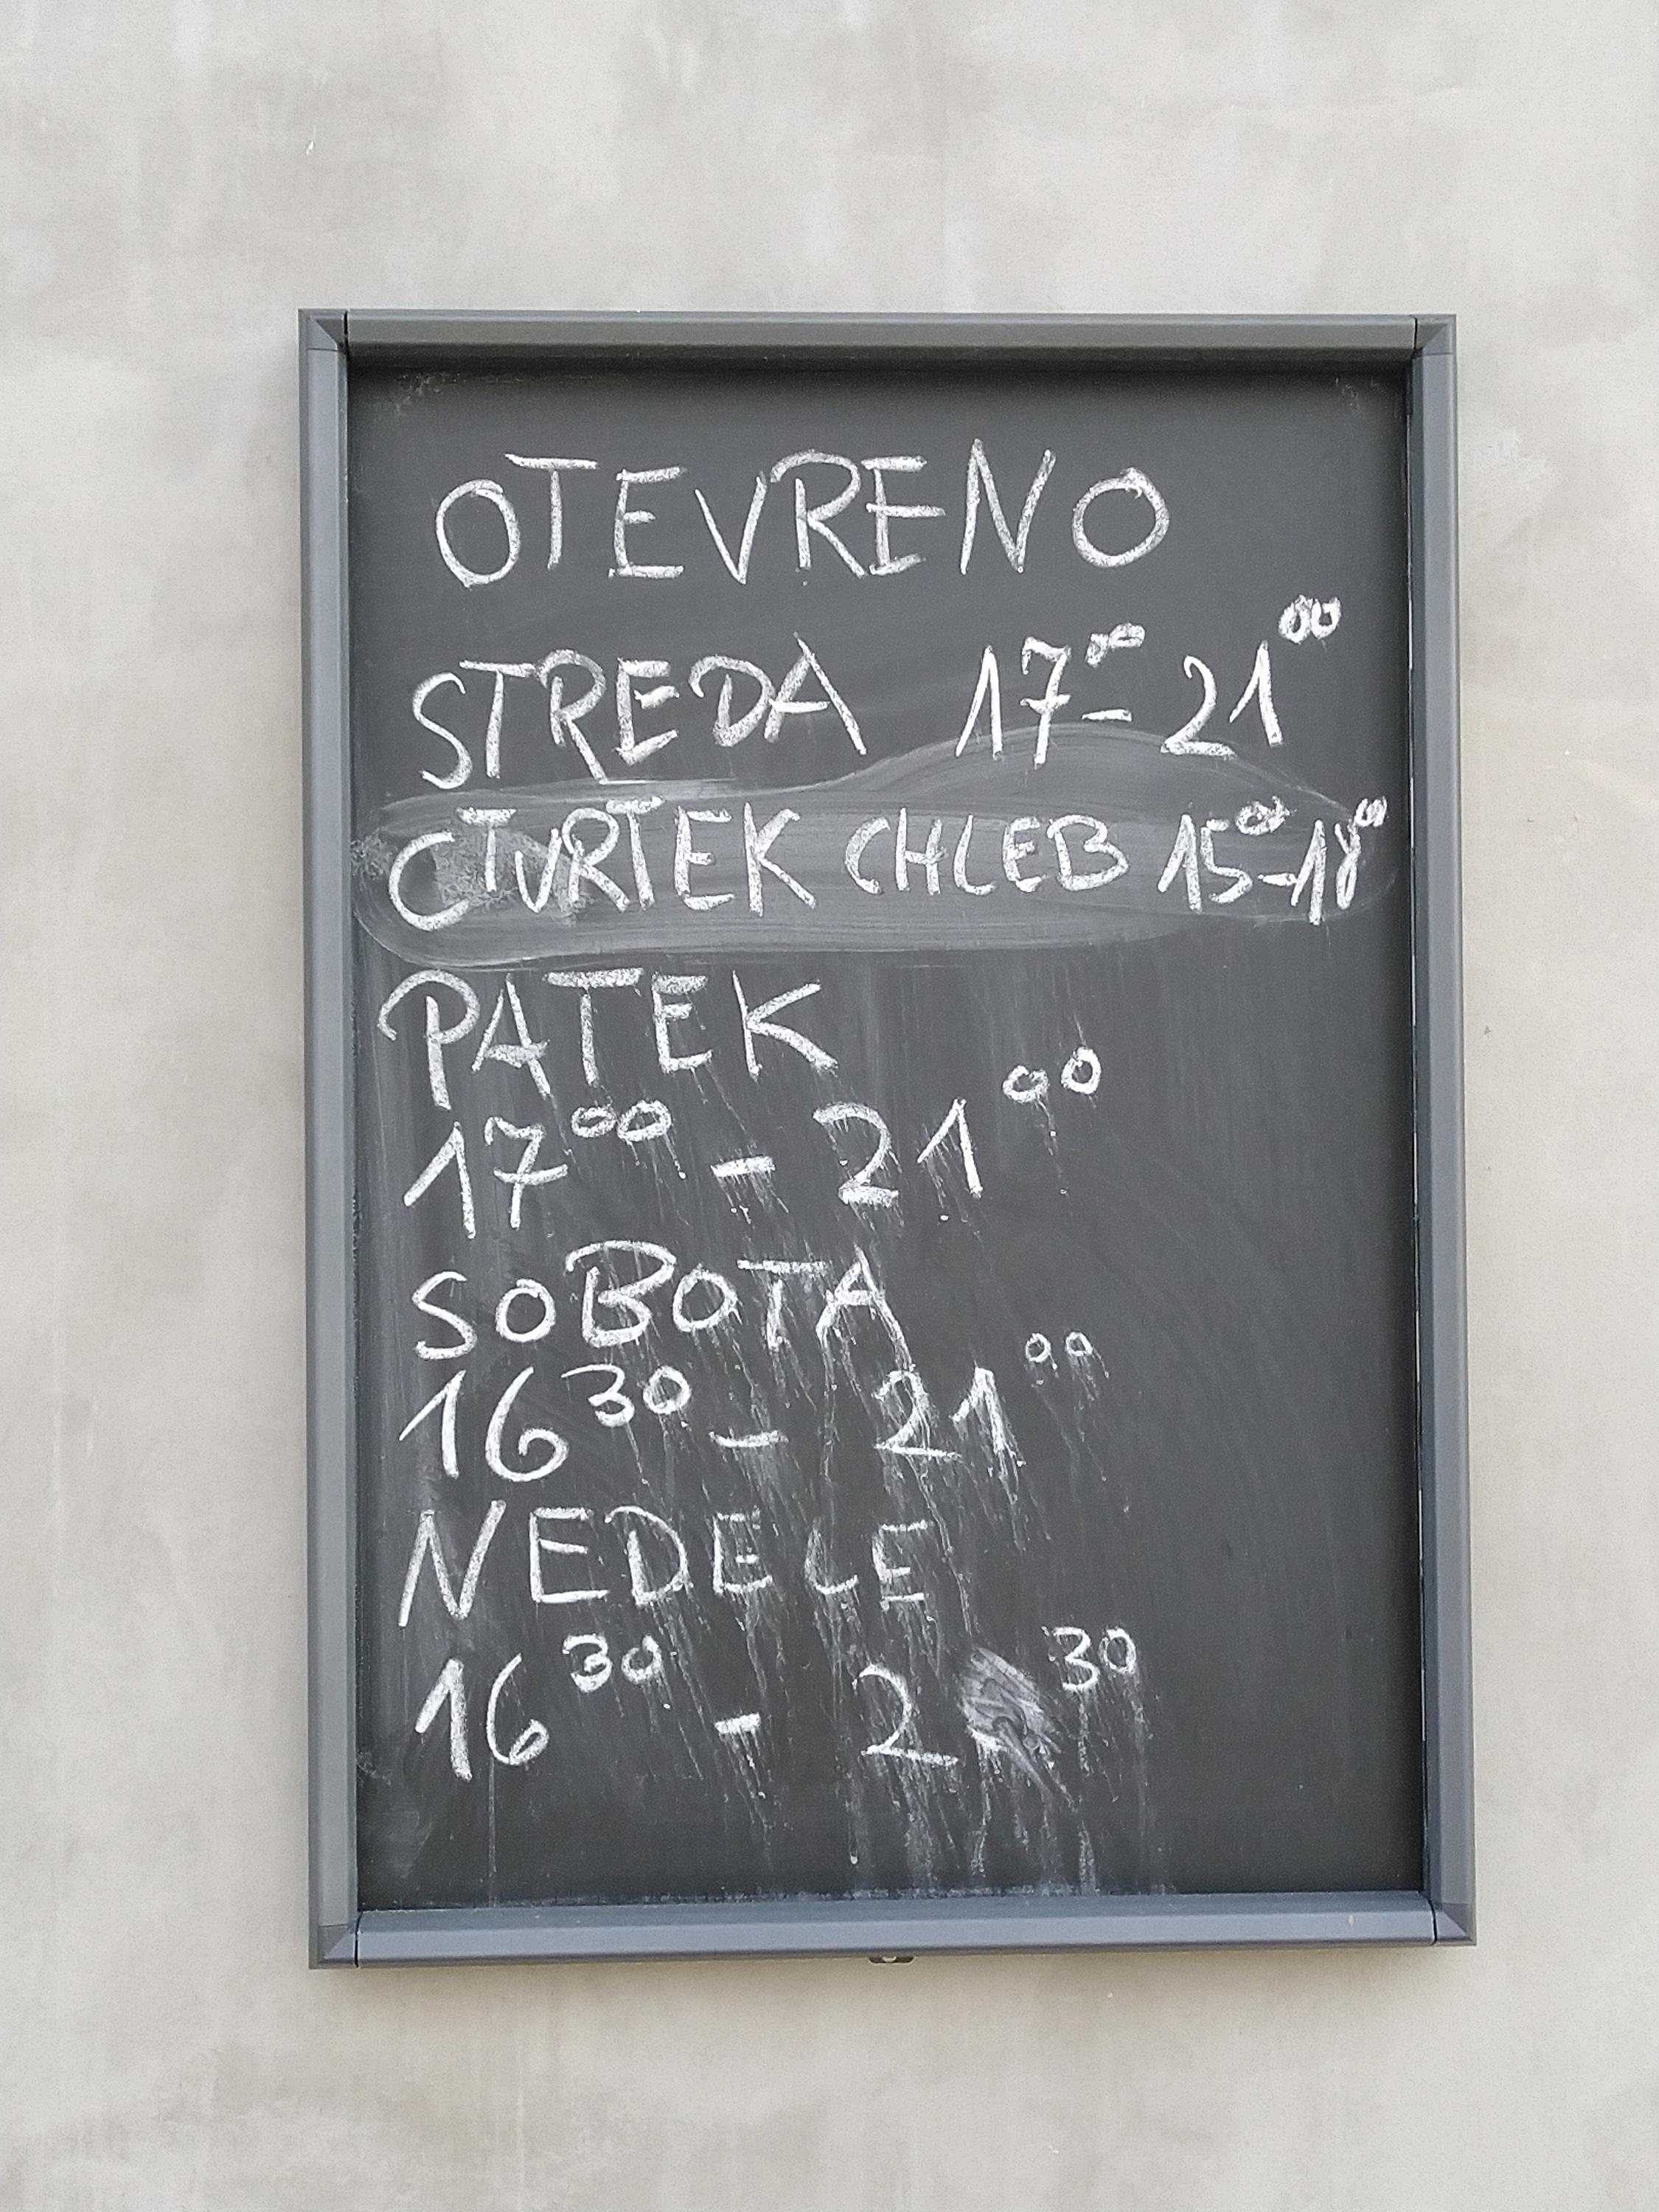 OTEVRENO
STREDA 17⁰⁰- 21⁰⁰
CTVRTEK CHLEB 15⁰⁰-18⁰⁰
PATEK
17⁰⁰ - 21⁰⁰
SOBOTA
16³⁰ - 21⁰⁰
NEDELE
16³⁰ -